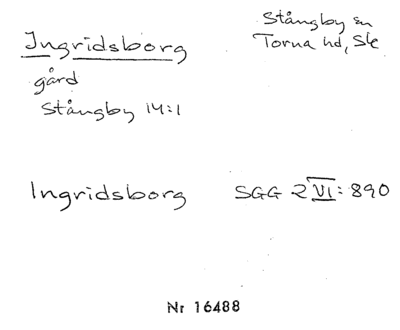 Ingridsborg
Stångby sn
Torna hd, Sk
gård
Stångby 14:1
Ingridsborg SGG 2 VI: 890
Nr 16488